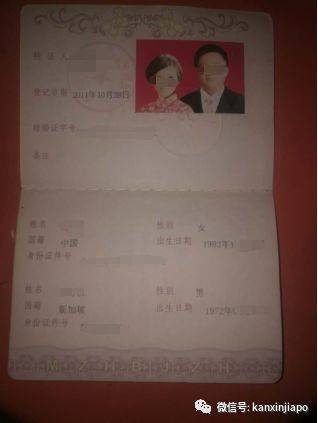 持证人
登记日期 2011年10月28日
结婚证字号
备注
姓名 性别 女
国籍 中国 出生日期 1992年1
身份证件号
姓名 性别 男
国籍 新加坡 出生日期 1972年
身份证件号
微信号: kanxinjiapo